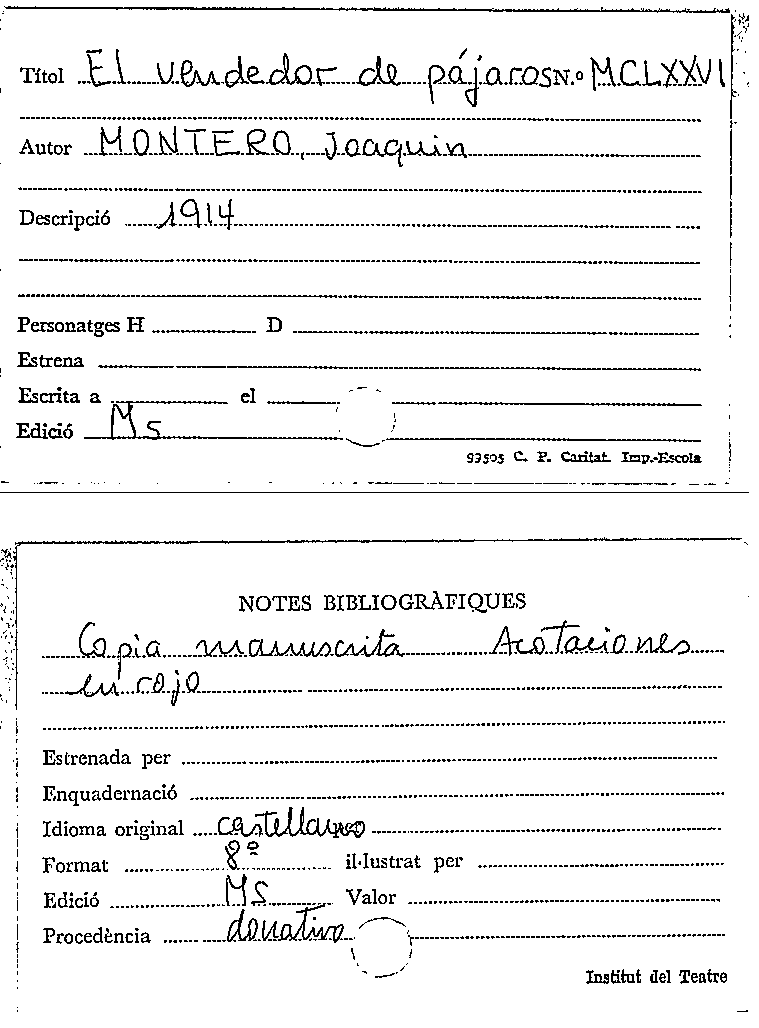 Títol El vendedor de pájaros N.º MCLXXVI
Autor MONTERO, Joaquin
Descripció 1914
Personatges H D
Estrena
Escrita a el
Edició Ms
93505 C. P. Caritat. Imp.-Escola
NOTES BIBLIOGRÀFIQUES
Copia manuscrita Acotaciones
en rojo
Estrenada per
Enquadernació
Idioma original castellano
Format 8º il·lustrat per
Edició MS Valor
Procedència donativo
Institut del Teatre